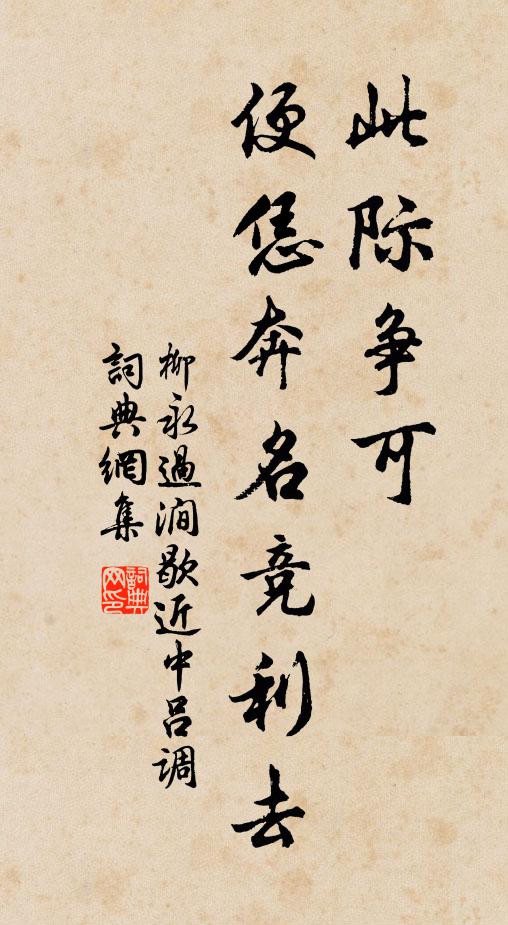 此际争可
便恁奔名竞利去
柳永過澗歇近中吕調
詞典網集
詞典網印